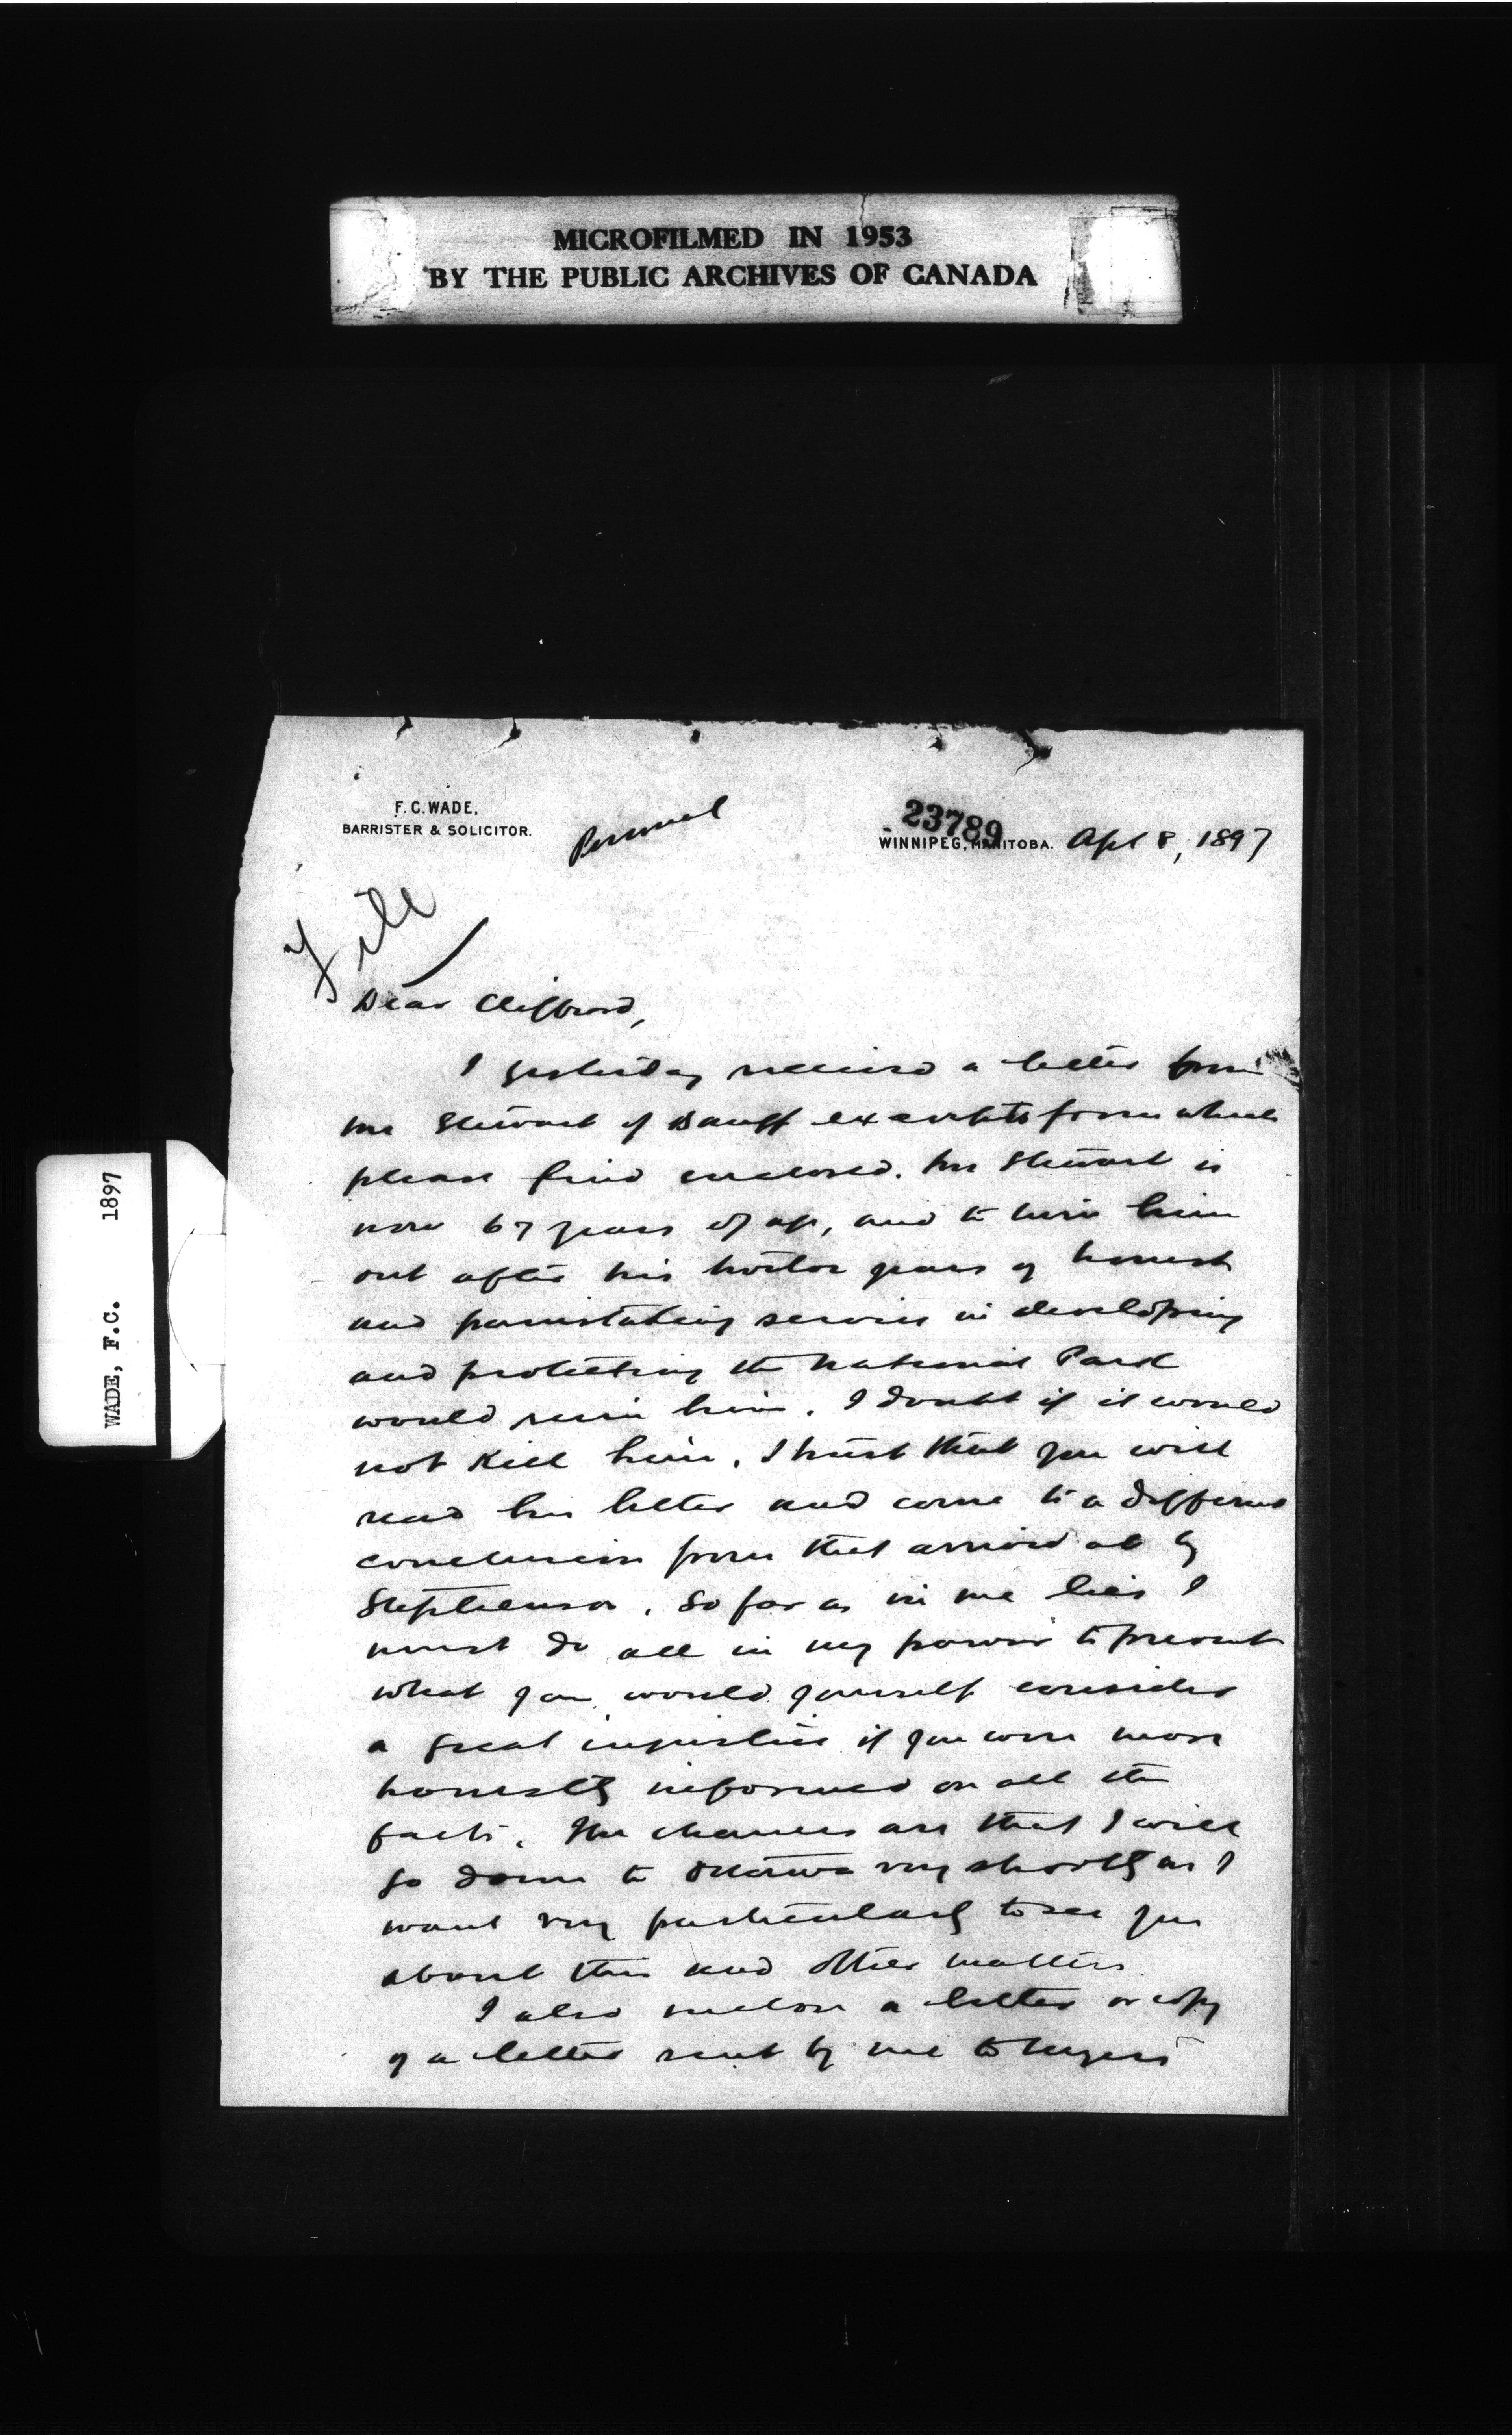 MICROFILMED IN 1953
BY THE PUBLIC ARCHIVES OF CANADA
WADE, F.C. 1897
F. C. WADE,
BARRISTER & SOLICITOR.
Personal
23789
WINNIPEG, MANITOBA. Apl 8, 1897
File
Dear Clifford,
I yesterday received a letter from
Mr Stewart of Banff excerpts from which
please find enclosed. Mr Stewart is
now 67 years of age, and to turn him
out after his years of honest
and painstaking service in developing
and protecting the National Park
would ruin him. I doubt if it would
not kill him. I trust that you will
read his letter and come to a different
conclusion from that arrived at by
Stephenson. So far as in me lies I
must do all in my power to prevent
what you would yourself consider
a great injustice if you were more
honestly informed on all the
facts. The chances are that I will
go down to Ottawa very shortly as I
want very particularly to see you
about this and other matters.
I also enclose a letter or copy
of a letter sent by me to